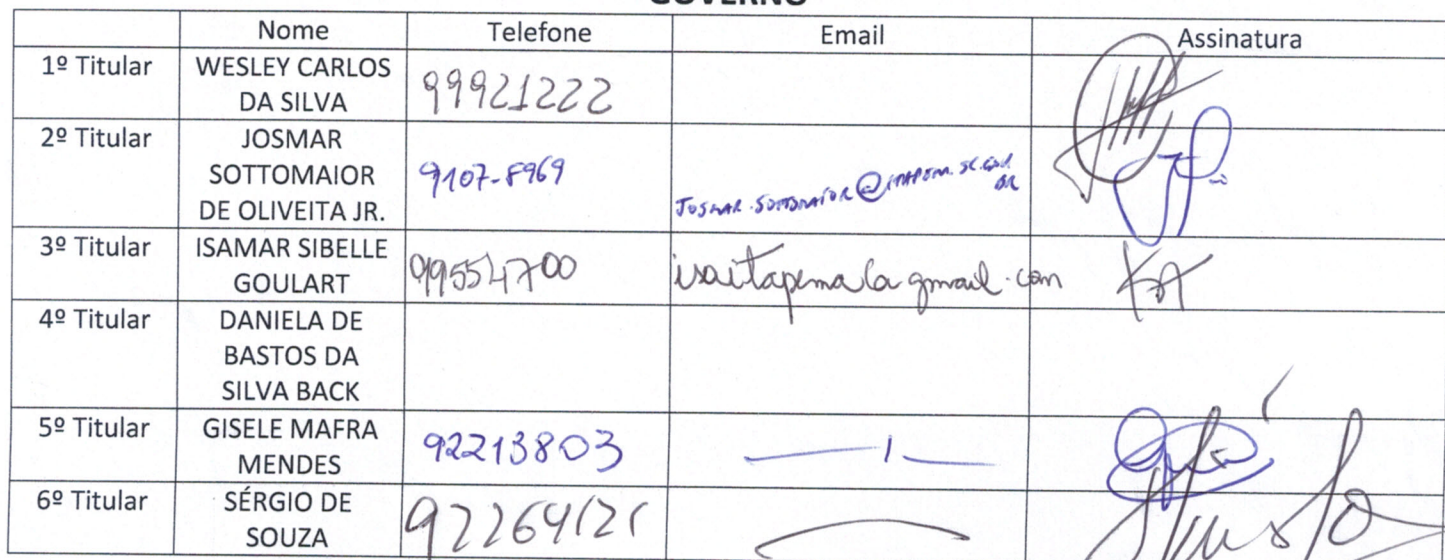 GOVERNO
Nome Telefone Email Assinatura
1º Titular WESLEY CARLOS DA SILVA 99921222
2º Titular JOSMAR SOTTOMAIOR DE OLIVEITA JR. 9107-8969 JOSMAR.SOTTOMAIOR@ITAPEMA.SC.GOV.BR
3º Titular ISAMAR SIBELLE GOULART 99554700 isaitapema@gmail.com
4º Titular DANIELA DE BASTOS DA SILVA BACK
5º Titular GISELE MAFRA MENDES 92213803
6º Titular SÉRGIO DE SOUZA